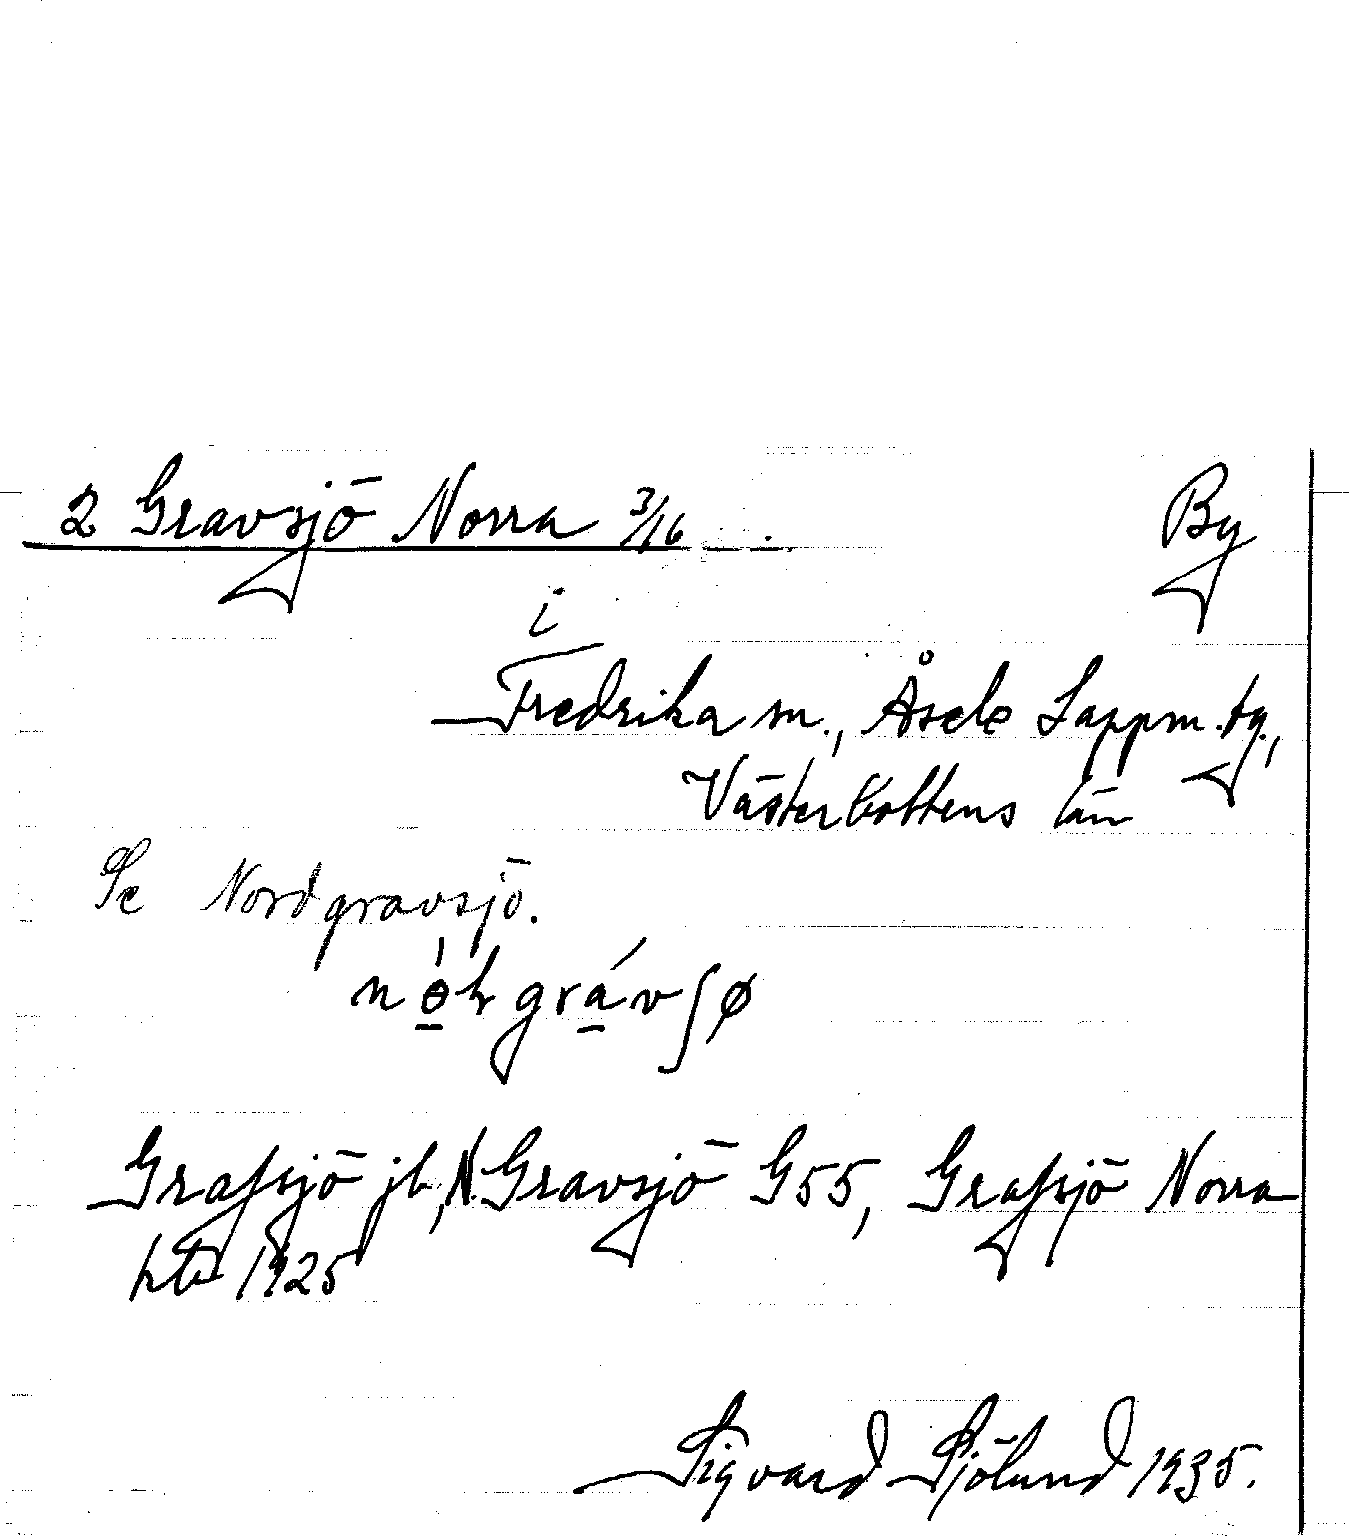 2 Gravsjö Norra 3/16 By
i
Fredrika sn., Åsele Lappm. tg.,
Västerbottens län
Se Nordgravsjö.
Grafsjö jb, N. Gravsjö G55, Grafsjö Norra
1925
Sigvard Sjölund 1935.